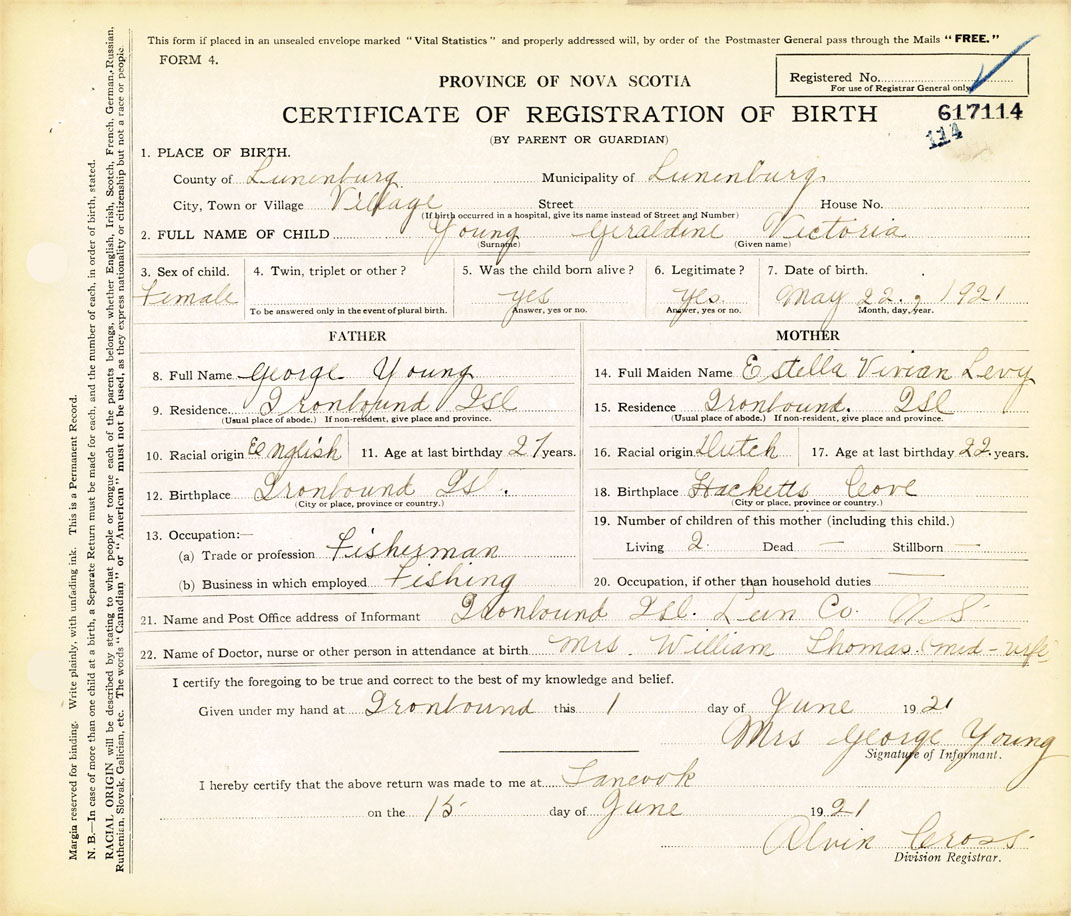 This form if placed in an unsealed envelope marked "Vital Statistics" and properly addressed will, by order of the Postmaster General pass through the Mails "FREE."
FORM 4.
Registered No.
For use of Registrar General only.
PROVINCE OF NOVA SCOTIA
CERTIFICATE OF REGISTRATION OF BIRTH
617114
114
(BY PARENT OR GUARDIAN)
1. PLACE OF BIRTH.
County of Lunenburg Municipality of Lunenburg
City, Town or Village Village Street House No.
(If birth occurred in a hospital, give its name instead of Street and Number)
2. FULL NAME OF CHILD Young Geraldine Victoria
(Surname) (Given name)
3. Sex of child. 4. Twin, triplet or other? 5. Was the child born alive? 6. Legitimate? 7. Date of birth.
Female yes Yes. May 22, 1921
To be answered only in the event of plural birth. Answer, yes or no. Answer, yes or no. Month, day, year.
FATHER MOTHER
8. Full Name George Young 14. Full Maiden Name Estella Vivian Levy
9. Residence Ironbound Isl 15. Residence Ironbound. Isl
(Usual place of abode.) If non-resident, give place and province. (Usual place of abode.) If non-resident, give place and province.
10. Racial origin English 11. Age at last birthday 27 years. 16. Racial origin Dutch 17. Age at last birthday 22 years.
12. Birthplace Ironbound Isl. 18. Birthplace Hacketts Cove
(City or place, province or country.) (City or place, province or country.)
13. Occupation:— 19. Number of children of this mother (including this child.)
(a) Trade or profession Fisherman Living 2 Dead — Stillborn —
(b) Business in which employed Fishing 20. Occupation, if other than household duties —
21. Name and Post Office address of Informant Ironbound Isl. Lun Co. N S
22. Name of Doctor, nurse or other person in attendance at birth Mrs. William Thomas. (mid-wife
I certify the foregoing to be true and correct to the best of my knowledge and belief.
Given under my hand at Ironbound this 1 day of June 1921
Mrs George Young
Signature of Informant.
I hereby certify that the above return was made to me at Tancook
on the 15 day of June 1921
Alvin Cross
Division Registrar.
Margin reserved for binding. Write plainly, with unfading ink. This is a Permanent Record.
N. B.—In case of more than one child at a birth, a Separate Return must be made for each, and the number of each, in order of birth, stated.
RACIAL ORIGIN will be described by stating to what people or tongue each of the parents belongs, whether English, Irish, Scotch, French, German, Russian,
Ruthenian, Slovak, Galician, etc. The words "Canadian" or "American" must not be used, as they express nationality or citizenship but not a race or people.